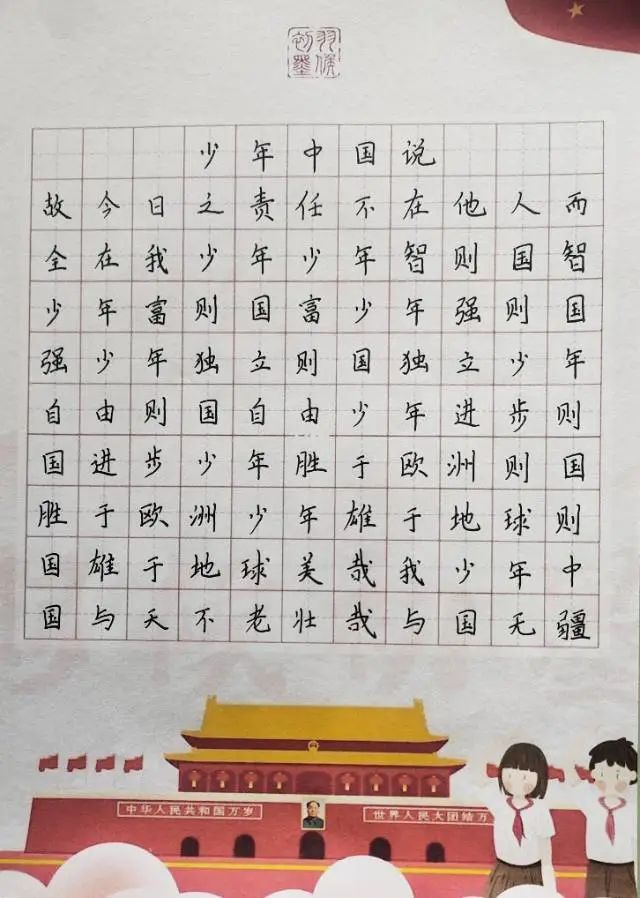 少年中国说
故今日之责任不在他人而
全在我少年少年智则国智
少年富则国富少年强则国
强少年独立则国独立少年
自由则国自由少年进步则
国进步少年胜于欧洲则国
胜于欧洲少年雄于地球则
国雄于地球美哉我少年中
国与天不老壮哉与国无疆
中华人民共和国万岁
世界人民大团结万